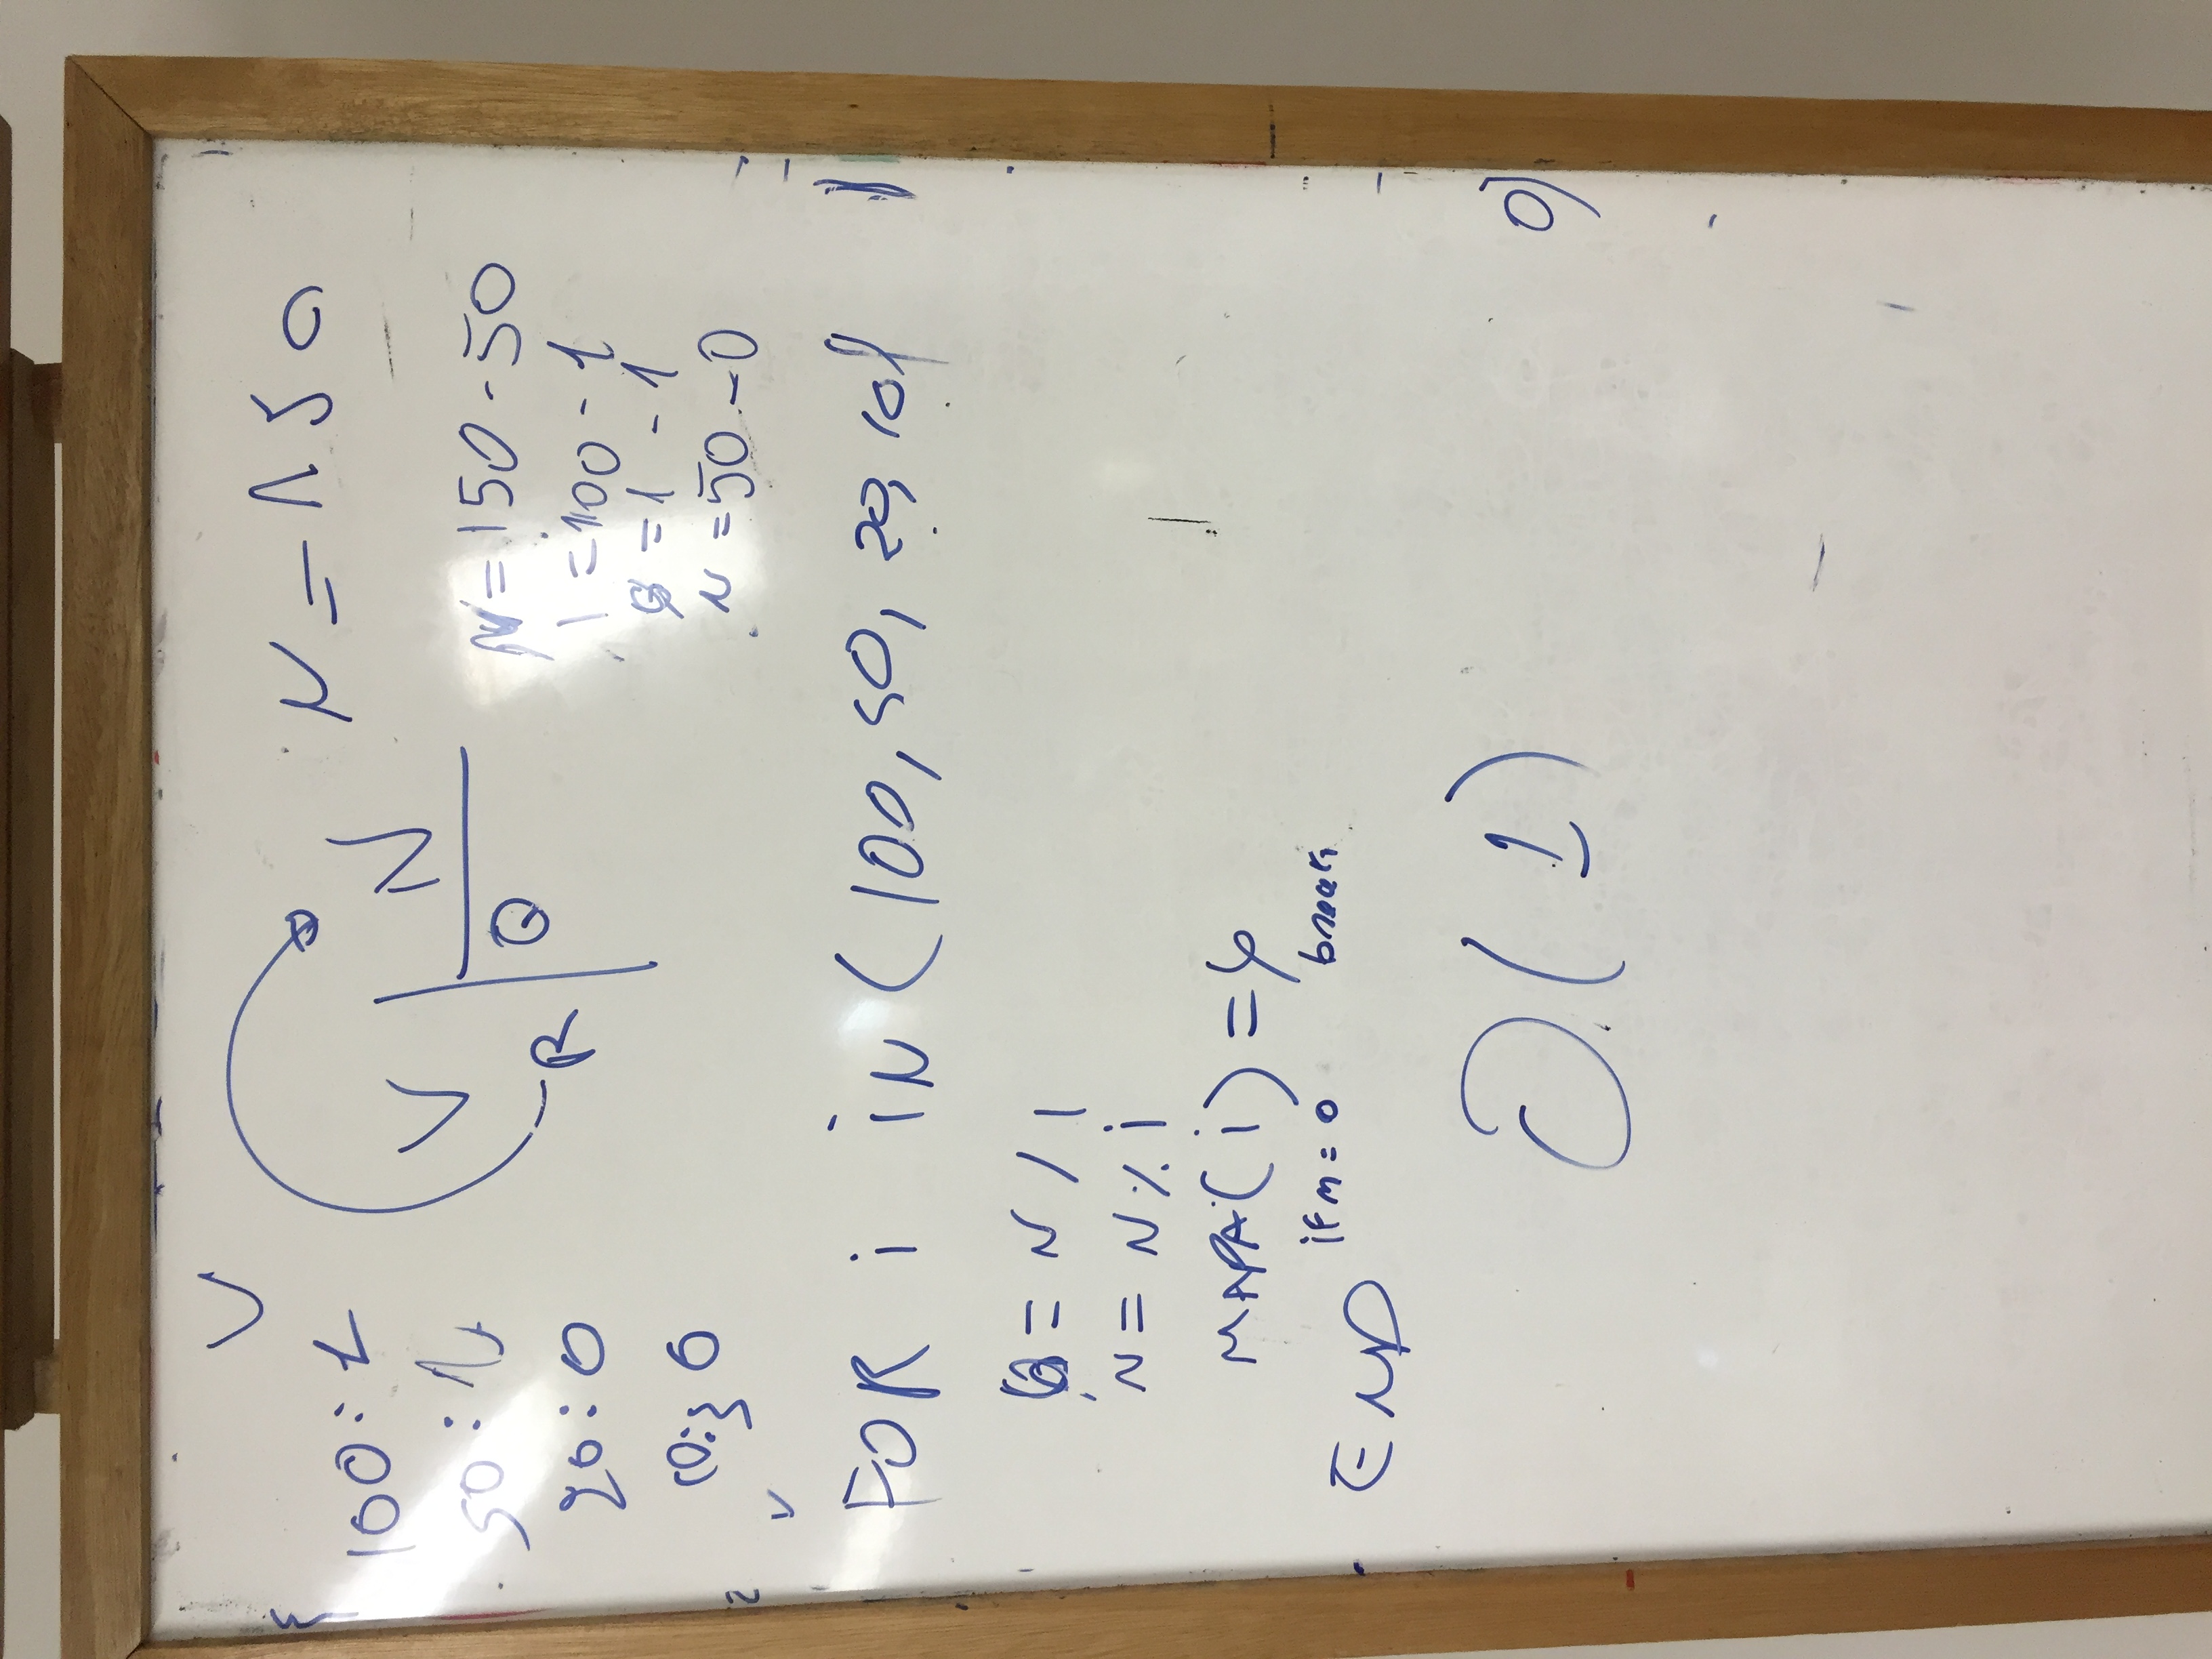 V
100: 1
50: 1
20: 0
10:} 0
V
V N
R Q
N = 150
N = 150 - 50
i = 100 - 1
Q = 1 - 1
N = 50 - 0
FOR i iN (100, 50, 20, 10)
Q = N / i
N = N % i
MAPA(i) = Q
if n = 0 break
END
O(1)
0)